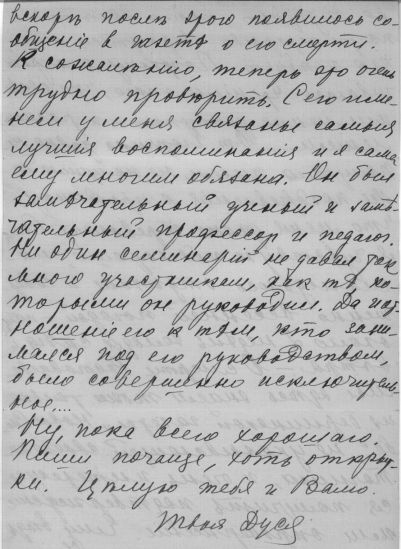 вскорѣ послѣ этого появилось со-
общеніе в газетѣ о его смерти.
К сожалѣнію, теперь это очень
трудно провѣрить. С его име-
нем у меня связаны самыя
лучшія воспоминанія и я сама
ему многим обязана. Он был
замѣчательный ученый и замѣ-
чательный профессор и педагог.
Ни один семинарій не давал так
много участникам, как тѣ, ко-
торыми он руководил. Да и от-
ношеніе его к тѣм, кто зани-
мался под его руководством,
было совершенно исключитель-
ное....
Ну, пока всего хорошаго.
Пиши почаще, хоть открыт-
ки. Цѣлую тебя и Валю.
Твоя Дуся